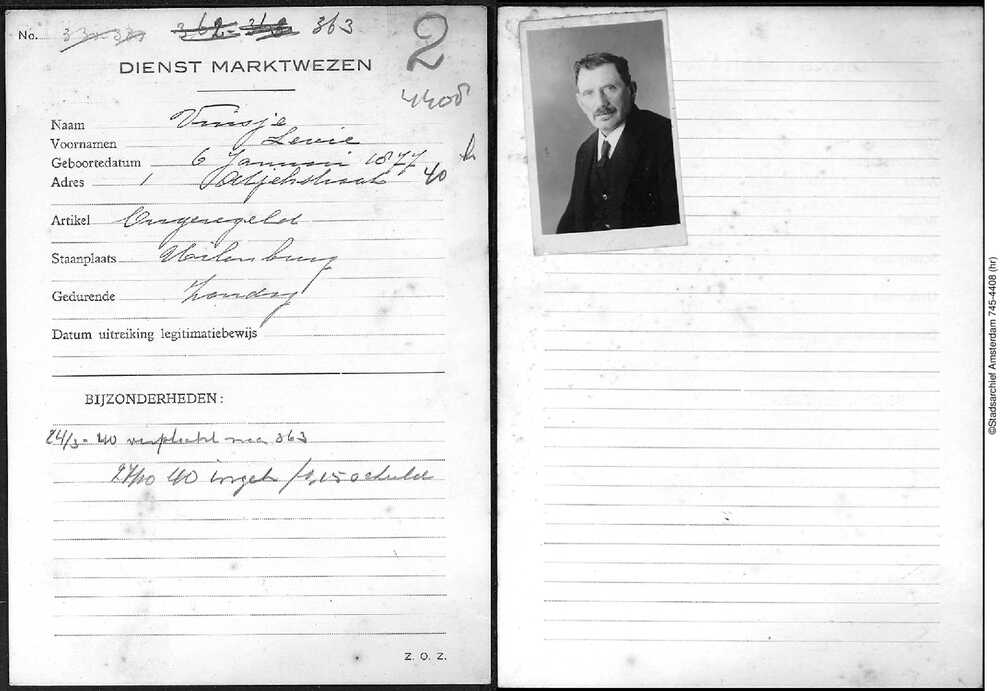 No. 362-363 363
2
DIENST MARKTWEZEN
4408
Naam
Voornamen Levie
Geboortedatum 6 Januari 1877
Adres 1 Atjehstraat 40 h
Artikel Ongeregeld
Staanplaats Uilenburg
Gedurende Zondag
Datum uitreiking legitimatiebewijs
BIJZONDERHEDEN:
24/3-40 verplaatst naar 363
27/10 40 inget schuld
Z. O. Z.
©Stadsarchief Amsterdam 745-4408 (hr)